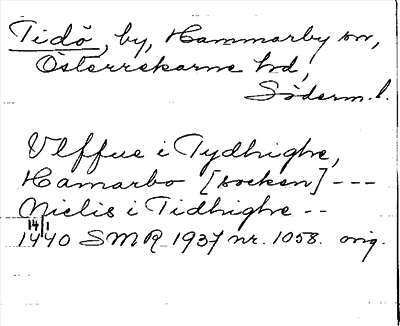 Tidö, by, Hammarby sn,
Österrekarne hd,
Söderm. l.
Ulffue i Tydhighe,
Hamarbo [socken] ---
Nielis i Tidhighe --
14/1 1440 SMR 1937 nr. 1058. orig.